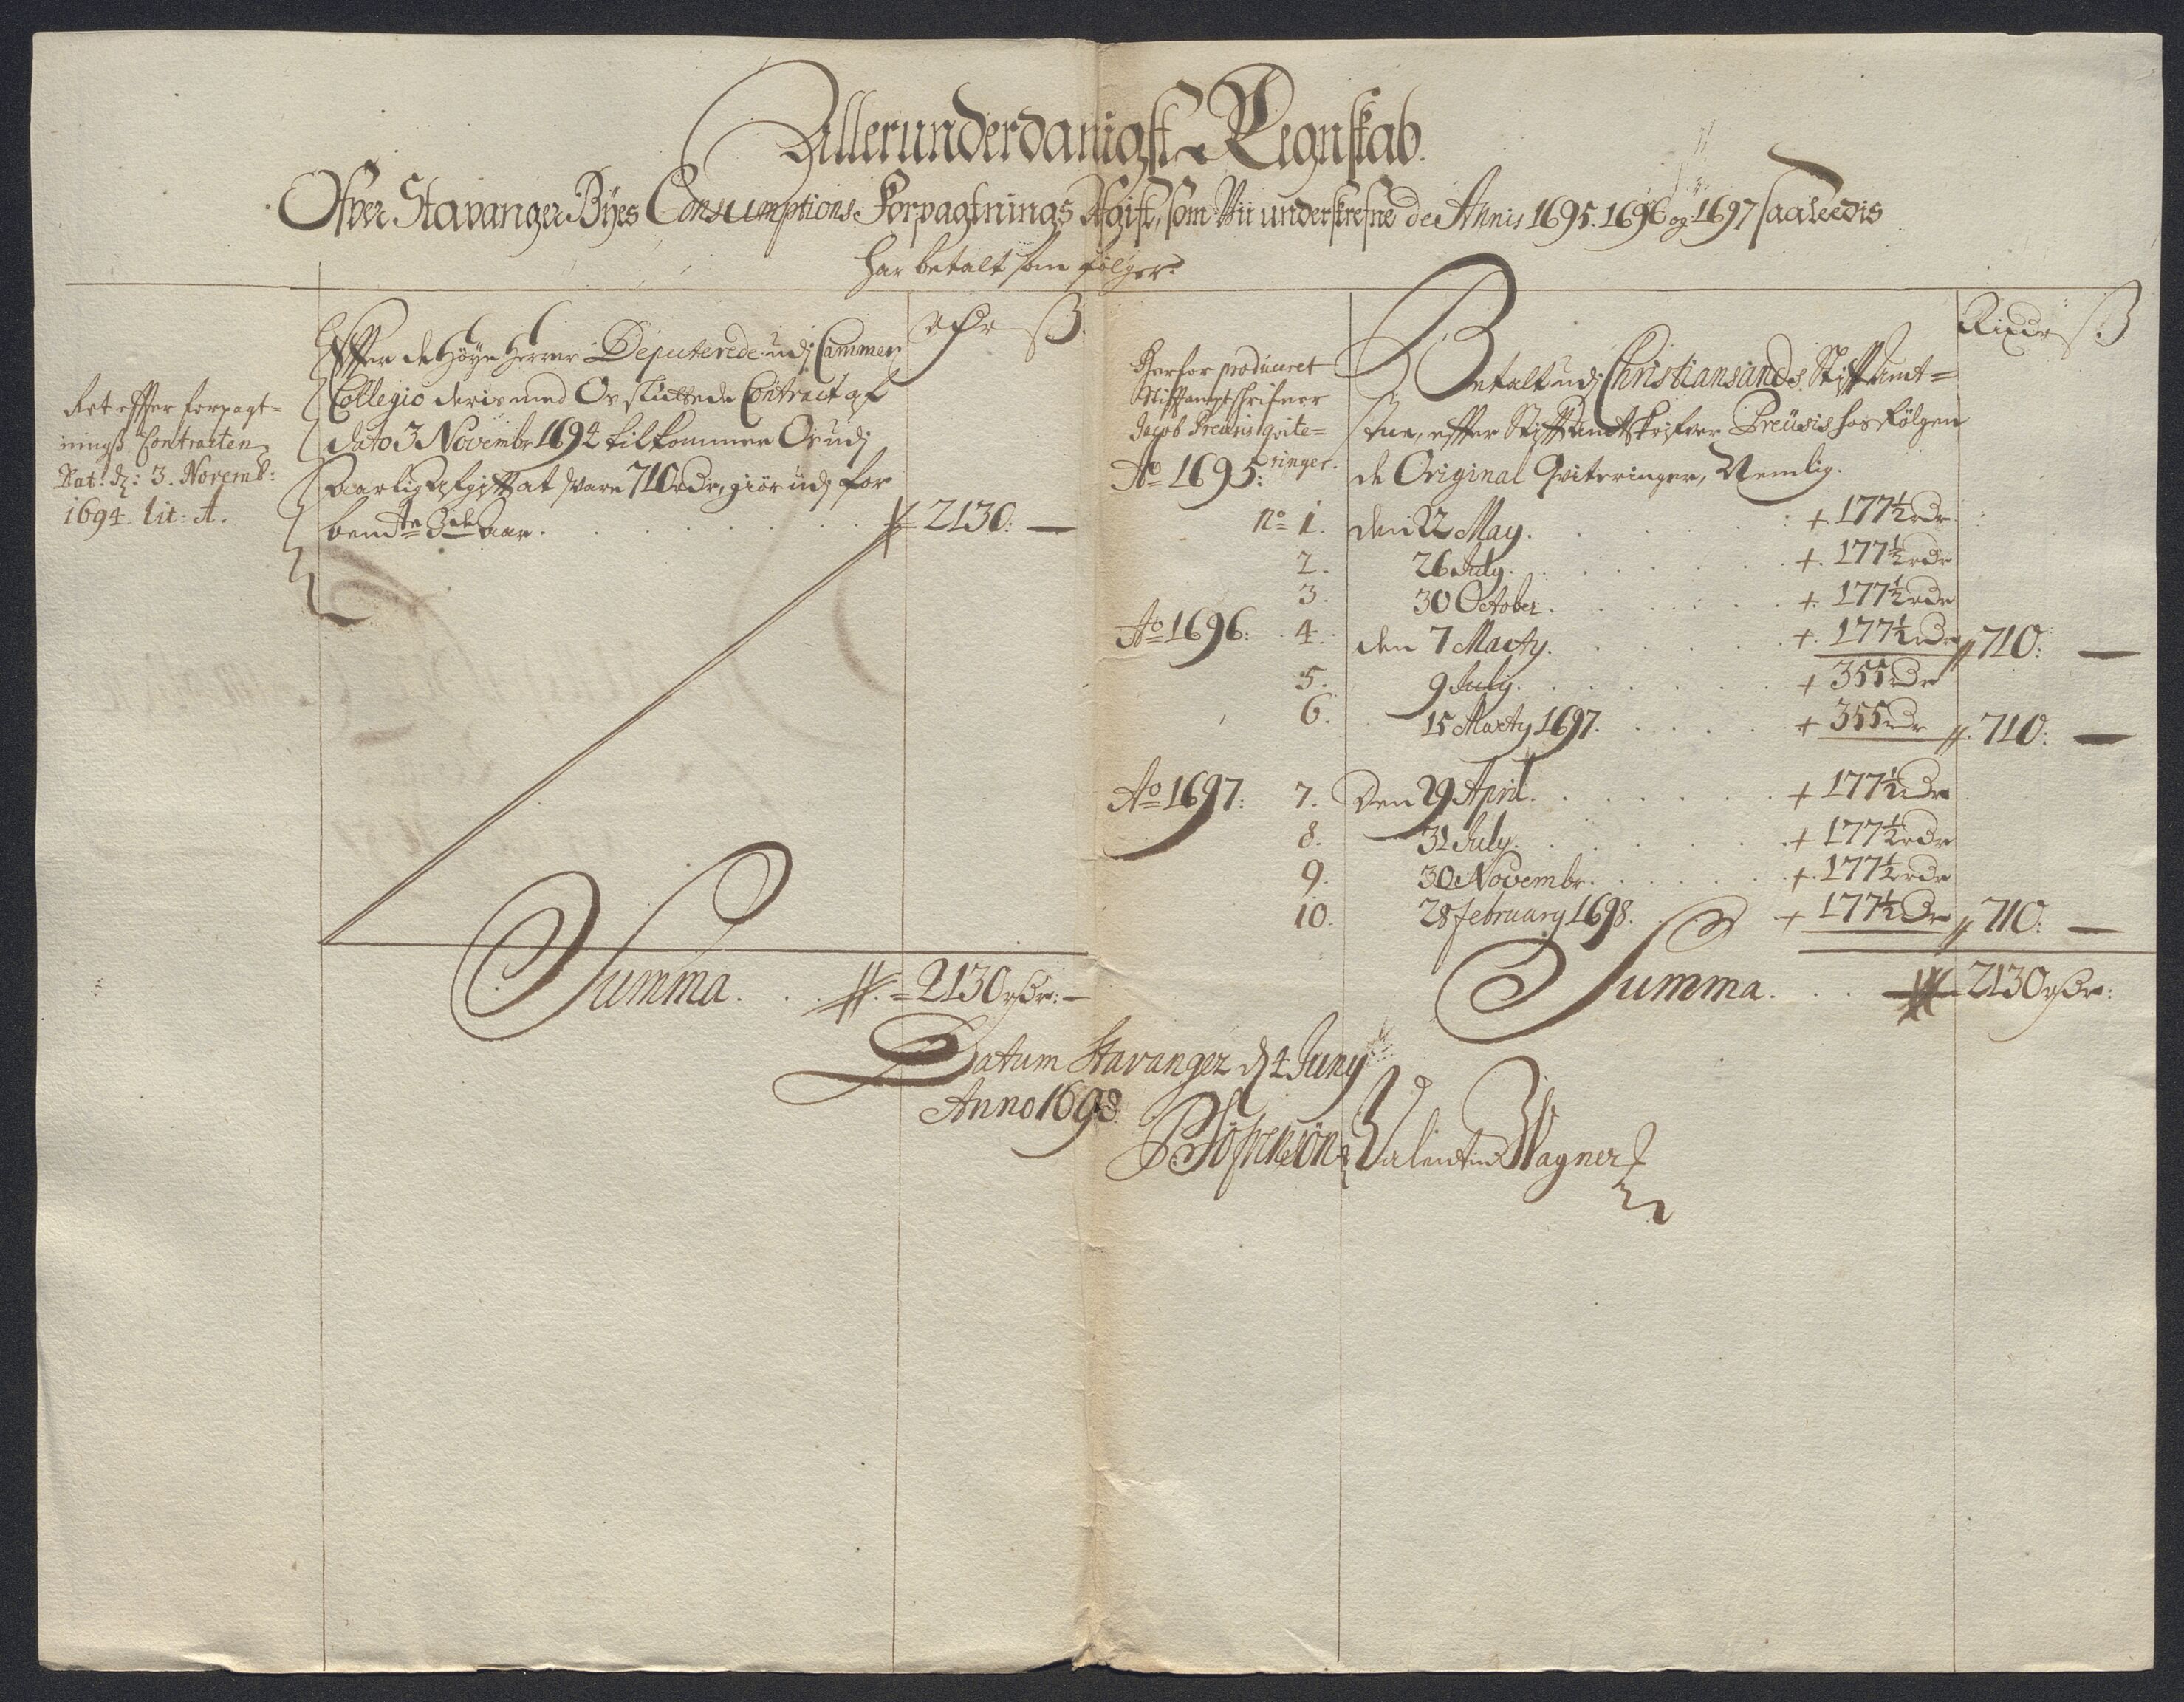 Allerunderdanigst Regnskab.
Ofver Stavanger Byes Consumptions Forpagtnings Afgift, som Vii underskrefne de Annis 1695. 1696 og 1697 saaleedis
har betalt som følger:
Ret effter forpagt=
nings Contracten
Dat: dz: 3. Novemb:
1694. Lit: A.
rdr ß.
Effter de Høye Herrer Deputerede udj Cammer
Collegio deris med Os sluttede Contract af
dato 3 Novembr 1694 tilkommer Os udj
Aarlig Afgifft at svare 710 rdr, giør udj for
bemte 3de Aar. 2130: —
Summa. 2130 rdr: —
Herfor produceret
Stifftamptskrifver
Jacob Preusis qvite=
ringer.
Rixdr ß
Betalt udj Christiansands Stifft Amt=
stue, effter Stifft Amtskrifver Preusis hos følgen
de Original Qviteringer, Nemlig.
Ao 1695:
No 1. den 22 May. + 177½ rdr
2. 26 July. + 177½ rdr
3. 30 October. + 177½ rdr
Ao 1696: 4. den 7 Marty. + 177½ rdr 710: —
5. 9 July. + 355 rdr
6. 15 Marty 1697. + 355 rdr 710: —
Ao 1697: 7. Den 29 April. + 177½ rdr
8. 31 July. + 177½ rdr
9. 30 Novembr. + 177½ rdr
10. 28 february 1698. + 177½ rdr 710: —
Summa. 2130 rdr:
Datum Stavanger d 4 Juny
Anno 1698.
Valentin Wagner